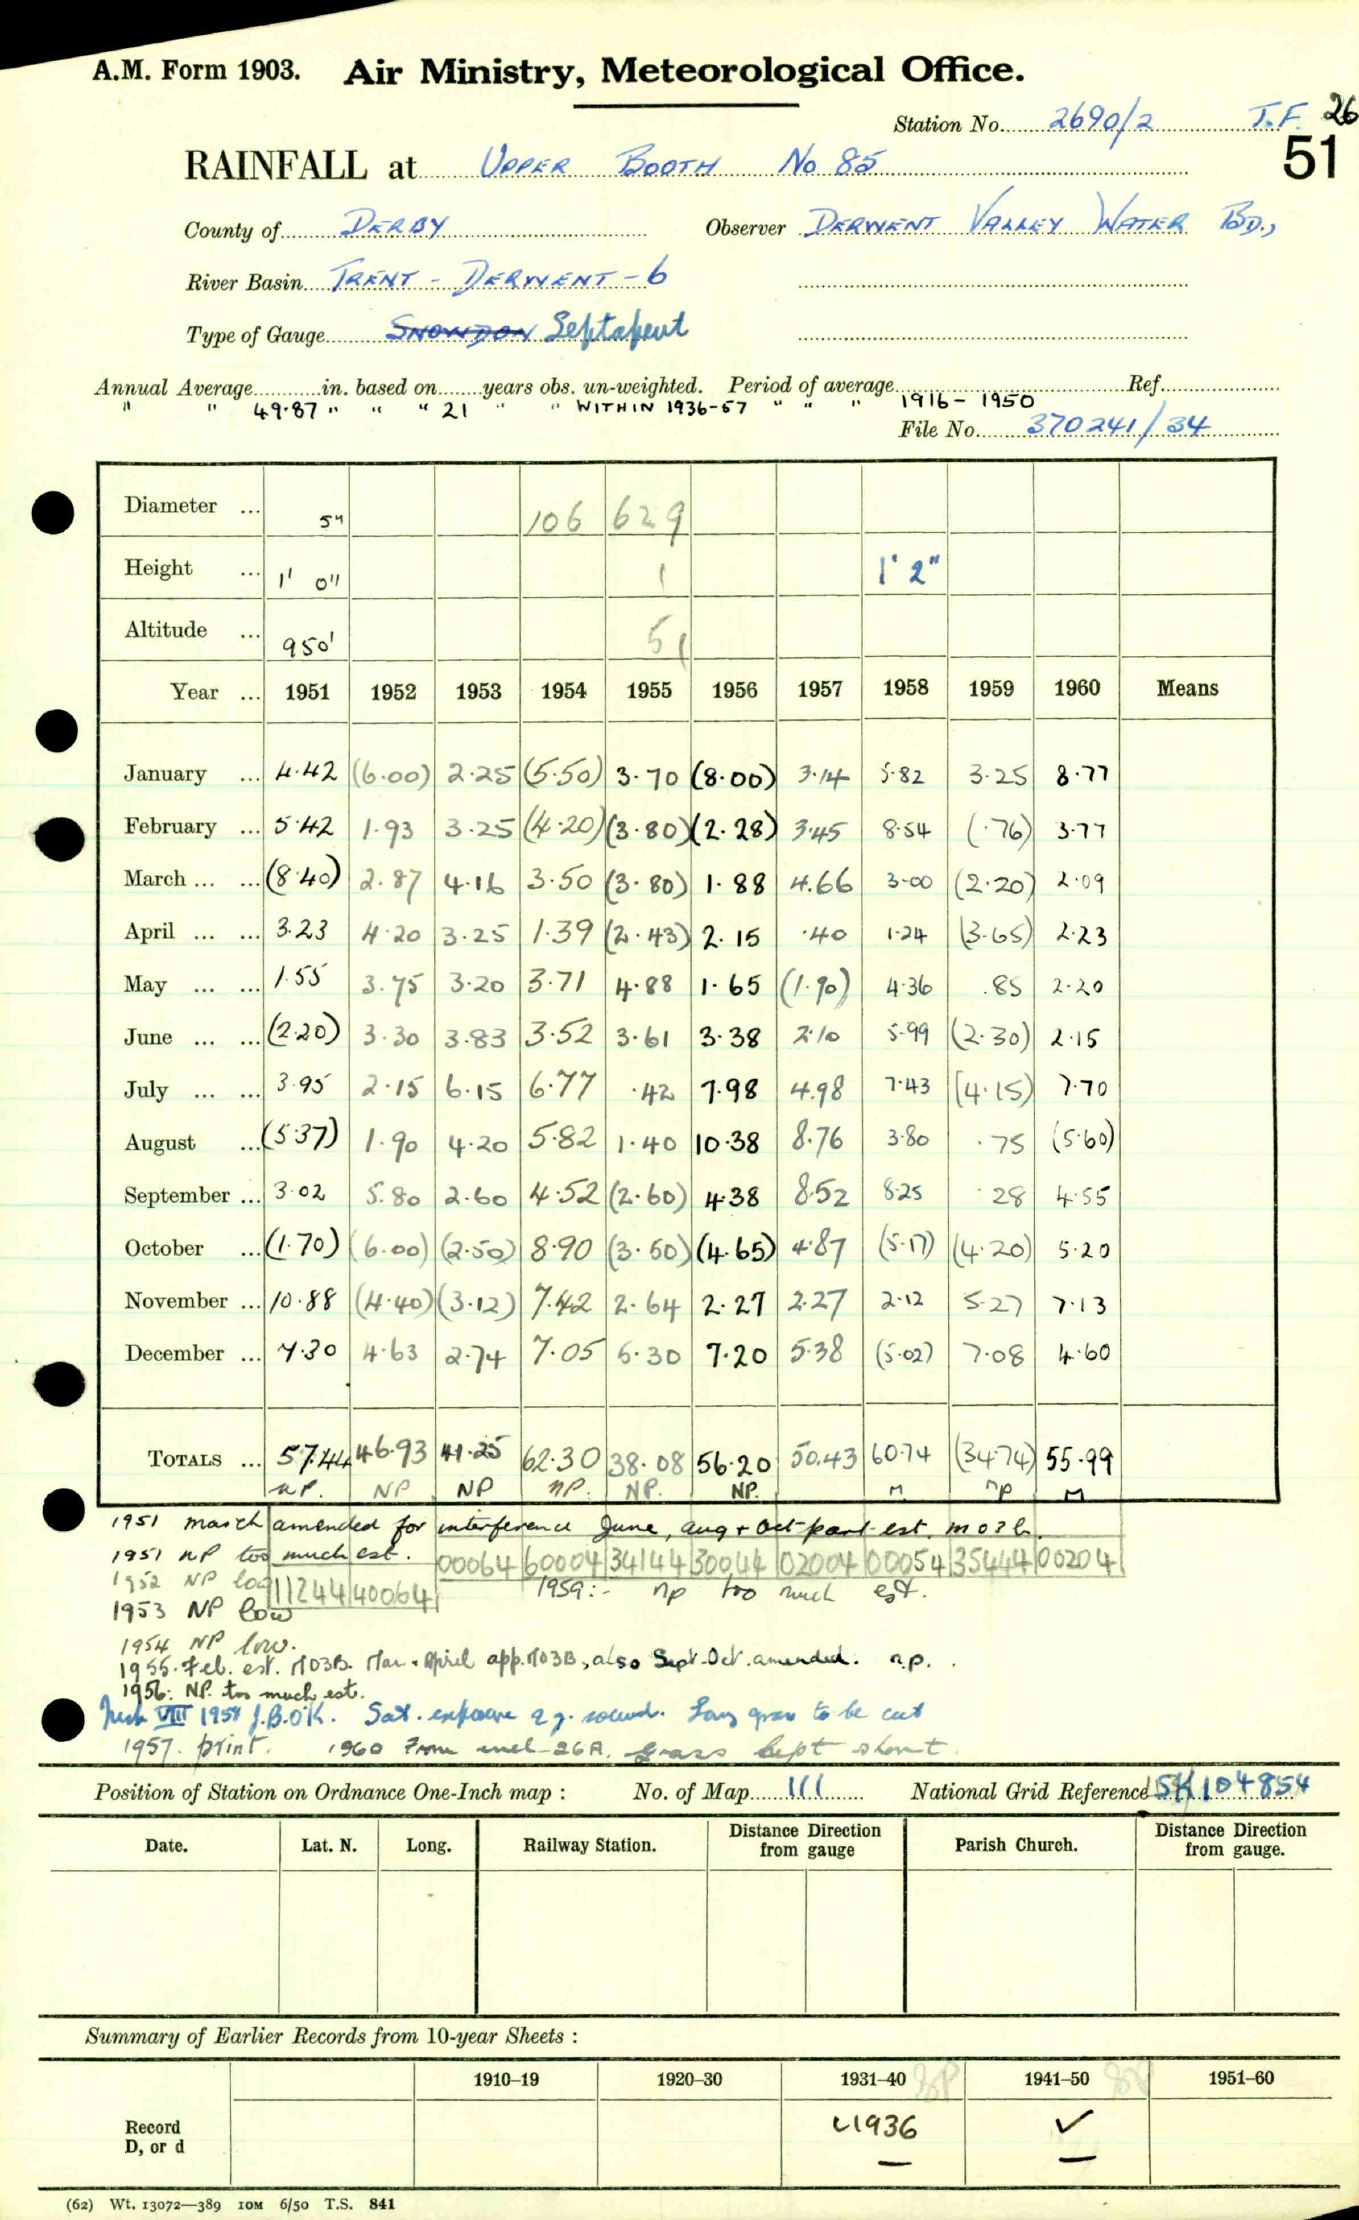 A.M. Form 1903. Air Ministry, Meteorological Office.
Station No. 2690/2 T.F. 26
51
RAINFALL at UPPER BOOTH No 85
County of DERBY Observer DERWENT VALLEY WATER BD.,
River Basin TRENT - DERWENT - 6
Type of Gauge SNOWDON Septapent
Annual Average in. based on years obs. un-weighted. Period of average Ref.
" " 49.87 " " " 21 " " WITHIN 1936-57 " " " 1916 - 1950
File No. 370241/34
Diameter ... 5" 106 629
Height ... 1' 0" 1 1' 2"
Altitude ... 950' 51
Year ... 1951 1952 1953 1954 1955 1956 1957 1958 1959 1960 Means
January ... 4.42 (6.00) 2.25 (5.50) 3.70 (8.00) 3.14 5.82 3.25 8.77
February ... 5.42 1.93 3.25 (4.20) (3.80) (2.28) 3.45 8.54 (.76) 3.77
March ... ... (8.40) 2.87 4.16 3.50 (3.80) 1.88 4.66 3.00 (2.20) 2.09
April ... ... 3.23 4.20 3.25 1.39 (2.43) 2.15 .40 1.24 (3.65) 2.23
May ... ... 1.55 3.75 3.20 3.71 4.88 1.65 (1.90) 4.36 .85 2.20
June ... ... (2.20) 3.30 3.83 3.52 3.61 3.38 2.10 5.99 (2.30) 2.15
July ... ... 3.95 2.15 6.15 6.77 .42 7.98 4.98 7.43 (4.15) 7.70
August ... (5.37) 1.90 4.20 5.82 1.40 10.38 8.76 3.80 .75 (5.60)
September ... 3.02 5.80 2.60 4.52 (2.60) 4.38 8.52 8.25 .28 4.55
October ... (1.70) (6.00) (2.50) 8.90 (3.50) (4.65) 4.87 (5.17) (4.20) 5.20
November ... 10.88 (4.40) (3.12) 7.42 2.64 2.27 2.27 2.12 5.27 7.13
December ... 7.30 4.63 2.74 7.05 5.30 7.20 5.38 (5.02) 7.08 4.60
TOTALS ... 57.44 46.93 41.25 62.30 38.08 56.20 50.43 60.74 (34.74) 55.99
NP. NP NP NP. NP. NP. M np M
1951 March amended for interference June, Aug + Oct part est. M03b.
1951 NP too much est. 00064 60004 34144 30044 02004 00054 35444 00204
1952 NP low 11244 40064 1959:- np too much est.
1953 NP low
1954 NP low.
1955. Feb. est. M03B. Mar. April app. M03B, also Sept. Oct. amended. n.p.
1956: NP. too much est.
VIII 195 J.B.O'K. Sat. exposure Long grass to be cut
1957. print. 1960 From encl-26A. grass kept short.
Position of Station on Ordnance One-Inch map : No. of Map 111 National Grid Reference SK 104854
Date. Lat. N. Long. Railway Station. Distance from gauge Direction Parish Church. Distance from gauge. Direction
Summary of Earlier Records from 10-year Sheets :
1910–19 1920–30 1931–40 1941–50 1951–60
Record 1936 ✓
D, or d — —
(62) Wt. 13072—389 10M 6/50 T.S. 841